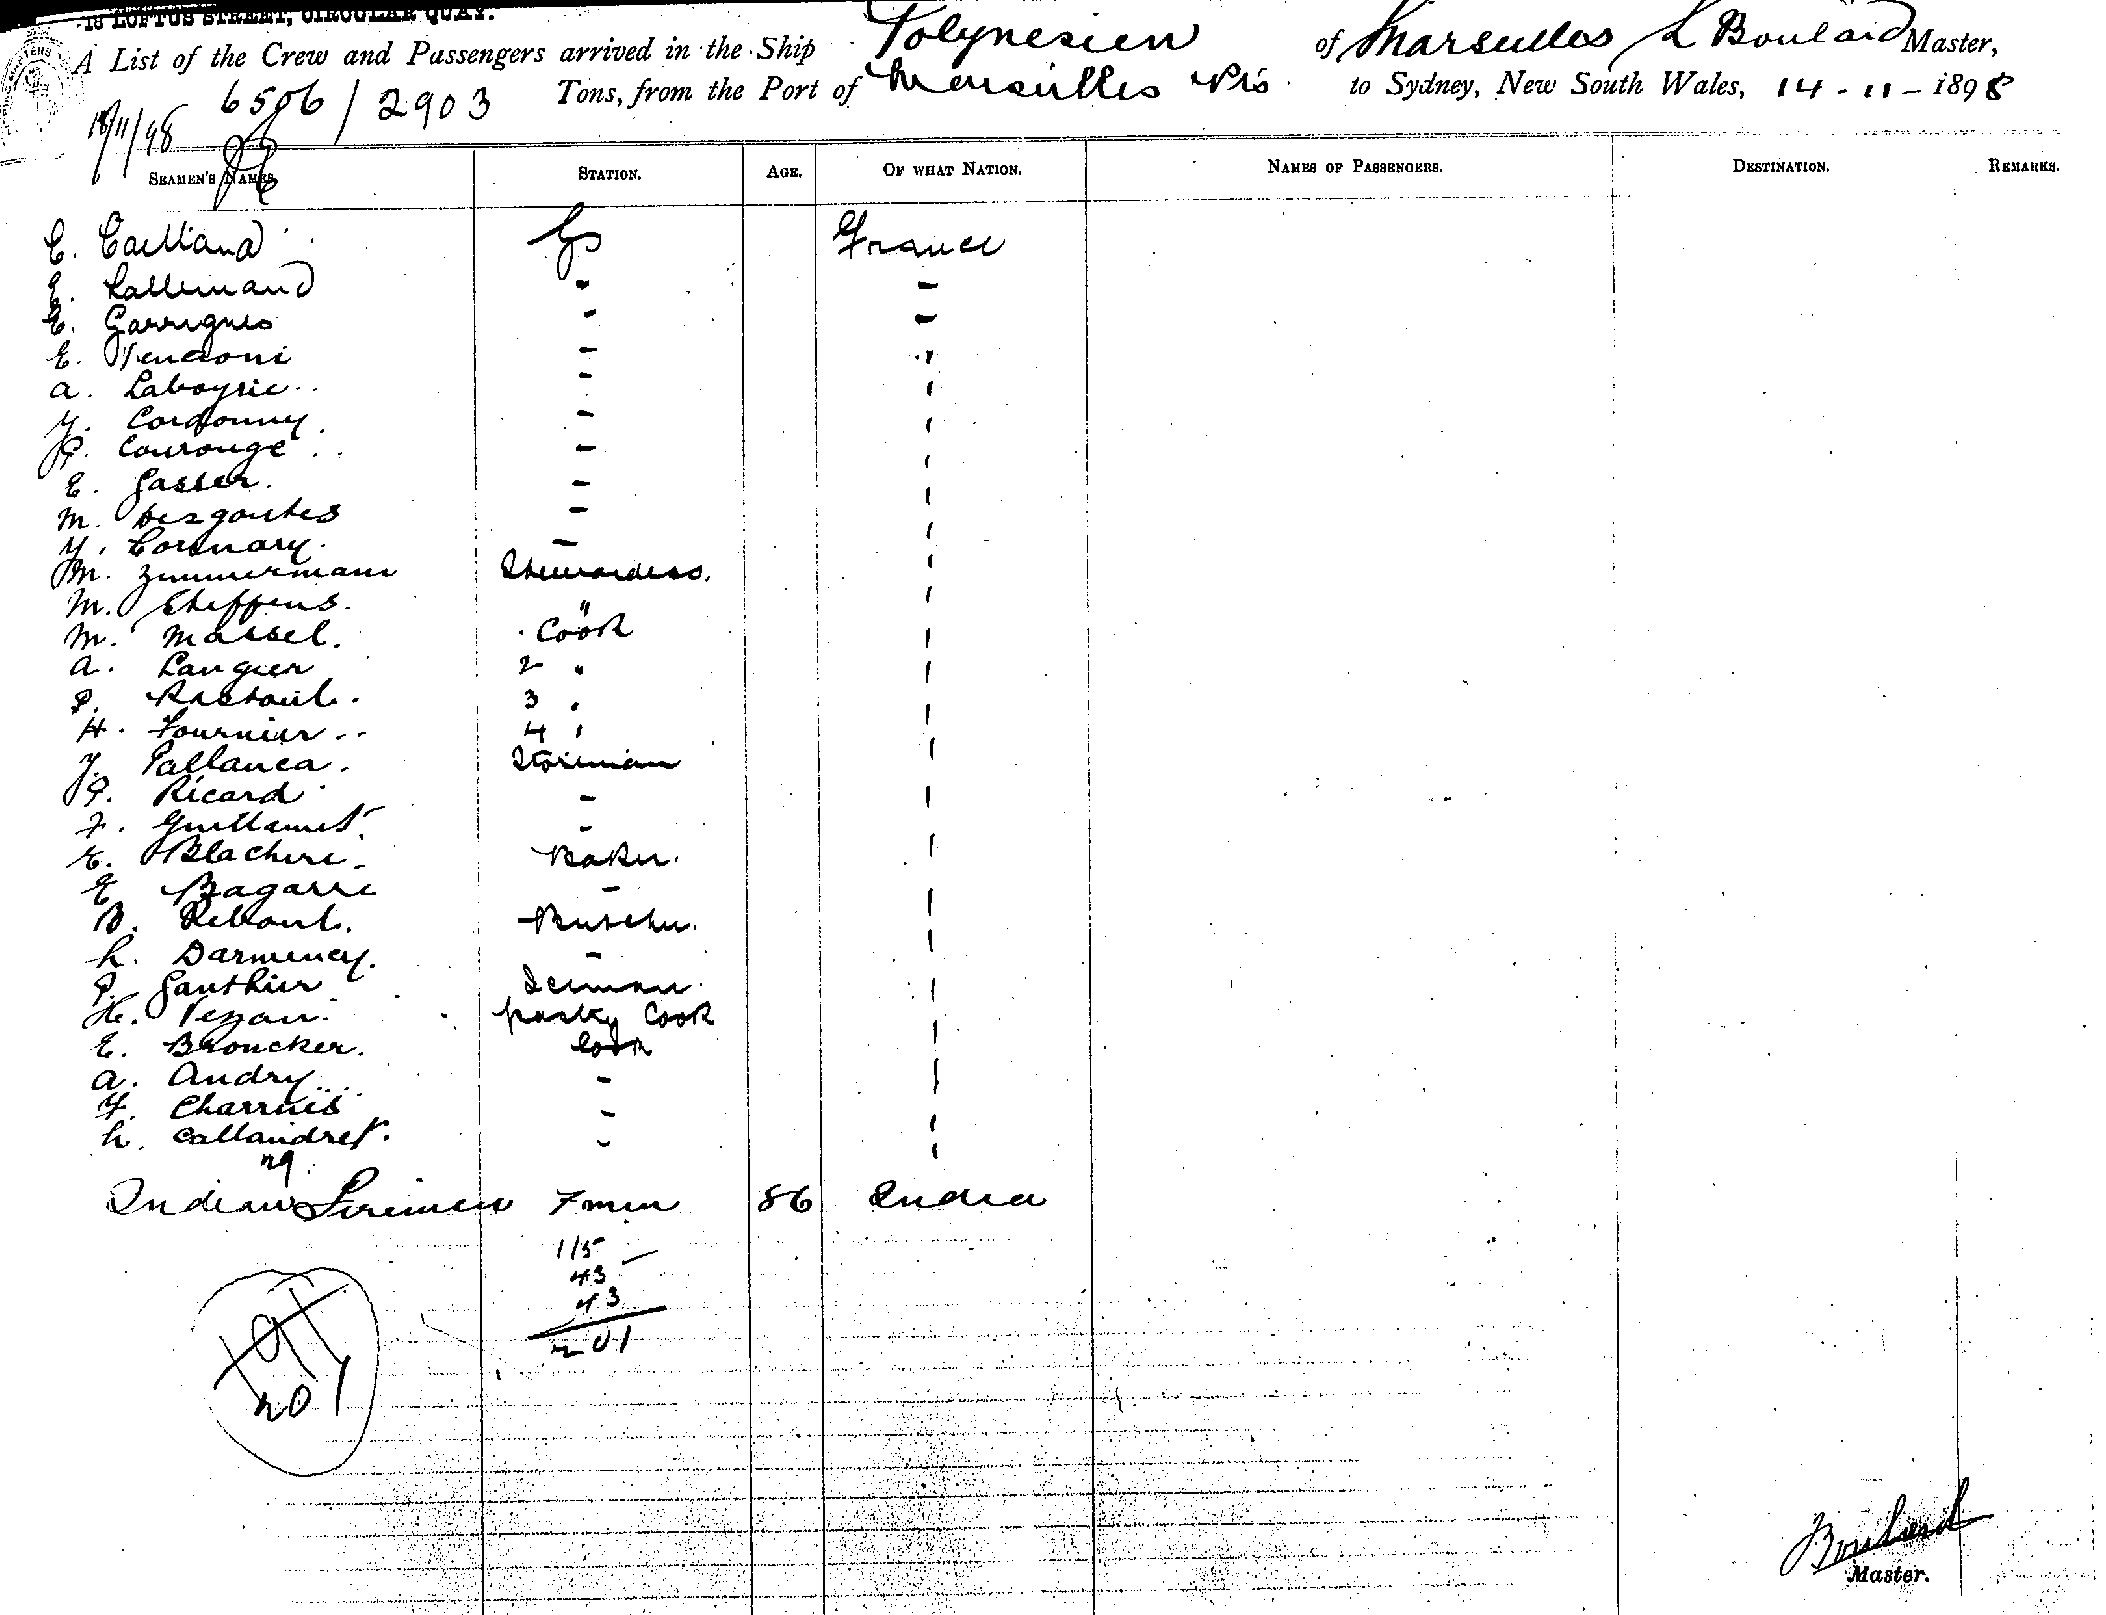 13 LOFTUS STREET, CIRCULAR QUAY.
A List of the Crew and Passengers arrived in the Ship Polynesien of Marseilles L Boulard Master,
6506 / 2903 Tons, from the Port of Marseilles to Sydney, New South Wales, 14 - 11 - 1898
18/11/98
SEAMEN'S NAMES. STATION. AGE. OF WHAT NATION. NAMES OF PASSENGERS. DESTINATION. REMARKS.
E. Cailland France
E. Lallemand " -
E. Garrigues - -
E. Vendoni - "
a. Laboyrie - "
y. Cordonny - "
P. Courouge - "
E. Gasser. - "
m. Desgouttes - "
y. Cornuary. - "
m. Zimmermann Stewardess. "
m. Steffens. " "
m. massel. Cook "
a. Laugier 2 " "
P. Rastoul. 3 " "
H. Fournier 4 " "
J. Pallanca. Storeman "
P. Ricard - "
F. Guillamet. - "
E. Blachere. Baker. "
E Bagarre - "
B. Reboul. Butcher. "
L. Darmency. - "
P. Gauthier "
H. Vezian. pastry Cook "
E. Broncker. Cook "
a. Andry - "
F. Charrnis - "
L. Callandret. - "
29
Indian Firemen 7 men 86 India
115
43
43
201
197
201
Boulard
Master.